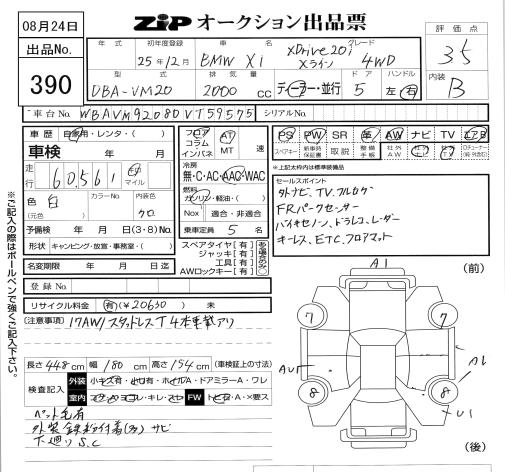 08月24日
ZiPオークション出品票
出品No.
390
年式 初年度登録 車名 グレード
25年12月 BMW X1 xDrive20i Xライン 4WD
型式 排気量 ドア ハンドル
DBA-VM20 2000 cc ディーラー・並行 5 左・右
評価点
3.5
内装
B
車台No. WBAVM92080VT59575 シリアルNo.
車歴 自家用・レンタ・( )
車検 年 月
走行 60,561 km マイル
色 白 (元色) カラーNo 内装色 クロ
予備検 年 月 日(3・8)No.
形状 キャンピング・放宣・事務室・( )
名変期限 年 月 日迄
登録No.
リサイクル料金 有(¥20630) 未
フロア コラム インパネ AT MT 速
冷房
無・C・AC・AAC・WAC
燃料
ガソリン・軽油・( )
Nox 適合・非適合
乗車定員 5 名
スペアタイヤ[有]
ジャッキ[有]
工具[有]
AWロックキー[有]
PS PW SR 革 AW ナビ TV エアB
スペアキー 新車時保証書 取説 整備手帳 社外AW 社外ナビ 社外TV
*上記太枠内は標準装備品
セールスポイント
外ナビ、TV、フルセグ
FRパークセンサー
ハイキセノン、ドラレコ、レーダー
キーレス、ETC、フロアマット
※ご記入の際はボールペンで強くご記入下さい。
(注意事項) 17AW/スタッドレスT4本車載アリ
長さ448cm 幅180cm 高さ154cm (車検証上の寸法)
検査記入 外装 小キズ有・小凹有・ホイルA・ドアミラーA・ワレ
室内 コゲ・穴・ヨゴレ・キレ・スレ FW トビA・A・×要ス
ペット毛有
外装鉄粉付着(多) サビ
下廻りS.C
A1
(前)
7
7
A1
8
8
U1
(後)